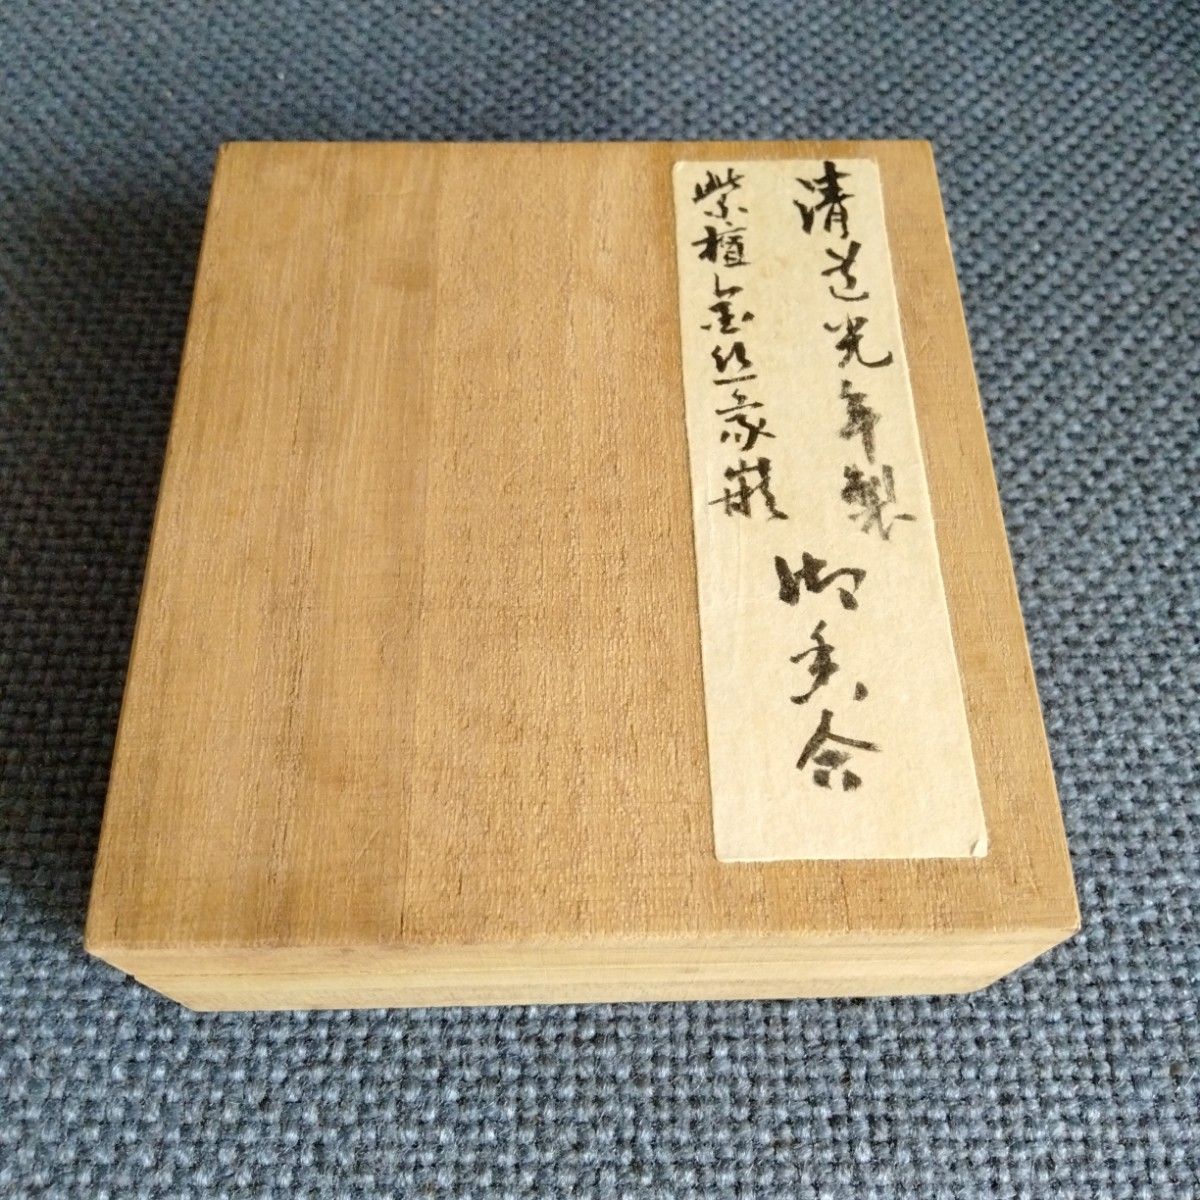 清道光年製
紫檀金絲象嵌
御香合